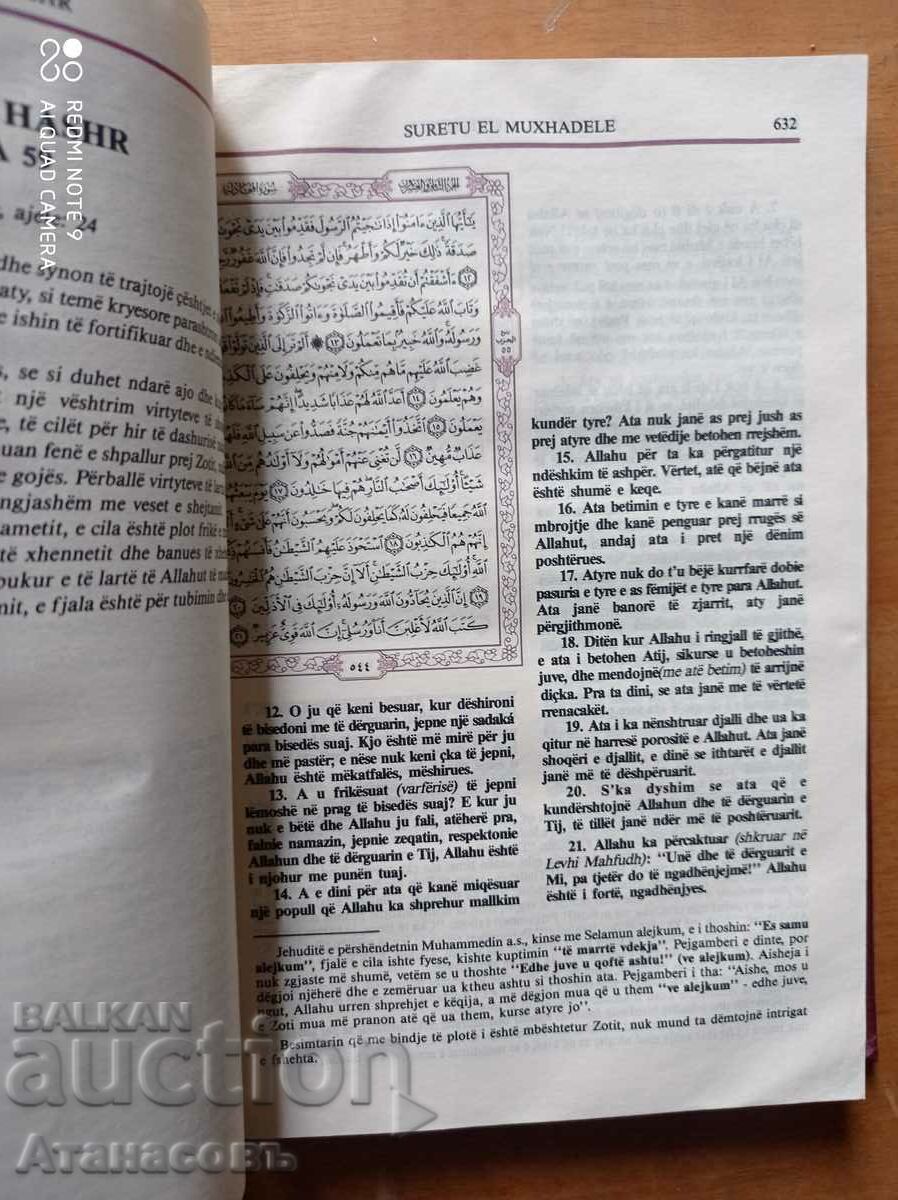 HASHR
dhe synon të trajtojë çështjen e
aty, si temë kryesore
e ishin të fortifikuar dhe e
se si duhet ndarë ajo dhe
një vështrim virtyteve të
e, të cilët për hir të dashurisë
uan fenë e shpallur prej Zotit,
e gojës. Përballë virtyteve të
ngjashëm me veset e shejtanit
ametit, e cila është plot frikë e
të xhennetit dhe banues të
bukur e të lartë të Allahut të
mit, e fjala është për tubimin dhe
SURETU EL MUXHADELE
632
يَٰٓأَيُّهَا ٱلَّذِينَ ءَامَنُوٓا۟ إِذَا نَٰجَيْتُمُ ٱلرَّسُولَ فَقَدِّمُوا۟ بَيْنَ يَدَىْ نَجْوَىٰكُمْ
صَدَقَةً ذَٰلِكَ خَيْرٌ لَّكُمْ وَأَطْهَرُ فَإِن لَّمْ تَجِدُوا۟ فَإِنَّ ٱللَّهَ غَفُورٌ رَّحِيمٌ
١٢ ءَأَشْفَقْتُمْ أَن تُقَدِّمُوا۟ بَيْنَ يَدَىْ نَجْوَىٰكُمْ صَدَقَٰتٍ فَإِذْ لَمْ تَفْعَلُوا۟
وَتَابَ ٱللَّهُ عَلَيْكُمْ فَأَقِيمُوا۟ ٱلصَّلَوٰةَ وَءَاتُوا۟ ٱلزَّكَوٰةَ وَأَطِيعُوا۟ ٱللَّهَ
وَرَسُولَهُۥ وَٱللَّهُ خَبِيرٌۢ بِمَا تَعْمَلُونَ ١٣ ۞ أَلَمْ تَرَ إِلَى ٱلَّذِينَ تَوَلَّوْا۟ قَوْمًا
غَضِبَ ٱللَّهُ عَلَيْهِم مَّا هُم مِّنكُمْ وَلَا مِنْهُمْ وَيَحْلِفُونَ عَلَى ٱلْكَذِبِ
وَهُمْ يَعْلَمُونَ ١٤ أَعَدَّ ٱللَّهُ لَهُمْ عَذَابًا شَدِيدًا إِنَّهُمْ سَآءَ مَا كَانُوا۟
يَعْمَلُونَ ١٥ ٱتَّخَذُوٓا۟ أَيْمَٰنَهُمْ جُنَّةً فَصَدُّوا۟ عَن سَبِيلِ ٱللَّهِ فَلَهُمْ
عَذَابٌ مُّهِينٌ ١٦ لَّن تُغْنِىَ عَنْهُمْ أَمْوَٰلُهُمْ وَلَآ أَوْلَٰدُهُم مِّنَ ٱللَّهِ
شَيْـًٔا أُو۟لَٰٓئِكَ أَصْحَٰبُ ٱلنَّارِ هُمْ فِيهَا خَٰلِدُونَ ١٧ يَوْمَ يَبْعَثُهُمُ
ٱللَّهُ جَمِيعًا فَيَحْلِفُونَ لَهُۥ كَمَا يَحْلِفُونَ لَكُمْ وَيَحْسَبُونَ أَنَّهُمْ عَلَىٰ شَىْءٍ أَلَآ
إِنَّهُمْ هُمُ ٱلْكَٰذِبُونَ ١٨ ٱسْتَحْوَذَ عَلَيْهِمُ ٱلشَّيْطَٰنُ فَأَنسَىٰهُمْ ذِكْرَ
ٱللَّهِ أُو۟لَٰٓئِكَ حِزْبُ ٱلشَّيْطَٰنِ أَلَآ إِنَّ حِزْبَ ٱلشَّيْطَٰنِ هُمُ ٱلْخَٰسِرُونَ
١٩ إِنَّ ٱلَّذِينَ يُحَآدُّونَ ٱللَّهَ وَرَسُولَهُۥٓ أُو۟لَٰٓئِكَ فِى ٱلْأَذَلِّينَ ٢٠
كَتَبَ ٱللَّهُ لَأَغْلِبَنَّ أَنَا۠ وَرُسُلِىٓ إِنَّ ٱللَّهَ قَوِىٌّ عَزِيزٌ ٢١
٥٤٤
12. O ju që keni besuar, kur dëshironi
të bisedoni me të dërguarin, jepne një sadaká
para bisedës suaj. Kjo është më mirë për ju
dhe më pastër; e nëse nuk keni çka të jepni,
Allahu është mëkatfalës, mëshirues.
13. A u frikësuat (varfërisë) të jepni
lëmoshë në prag të bisedës suaj? E kur ju
nuk e bëtë dhe Allahu ju fali, atëherë pra,
falnie namazin, jepnie zeqatin, respektonie
Allahun dhe të dërguarin e Tij, Allahu është
i njohur me punën tuaj.
14. A e dini për ata që kanë miqësuar
një popull që Allahu ka shprehur mallkim
kundër tyre? Ata nuk janë as prej jush as
prej atyre dhe me vetëdije betohen rrejshëm.
15. Allahu për ta ka përgatitur një
ndëshkim të ashpër. Vërtet, atë që bëjnë ata
është shumë e keqe.
16. Ata betimin e tyre e kanë marrë si
mbrojtje dhe kanë penguar prej rrugës së
Allahut, andaj ata i pret një dënim
poshtërues.
17. Atyre nuk do t'u bëjë kurrfarë dobie
pasuria e tyre e as fëmijët e tyre para Allahut.
Ata janë banorë të zjarrit, aty janë
përgjithmonë.
18. Ditën kur Allahu i ringjall të gjithë,
e ata i betohen Atij, sikurse u betoheshin
juve, dhe mendojnë(me atë betim) të arrijnë
diçka. Pra ta dini, se ata janë me të vërtetë
rrenacakët.
19. Ata i ka nënshtruar djalli dhe ua ka
qitur në harresë porositë e Allahut. Ata janë
shoqëri e djallit, e dinë se ithtarët e djallit
janë më të dëshpëruarit.
20. S'ka dyshim se ata që e
kundërshtojnë Allahun dhe të dërguarin e
Tij, të tillët janë ndër më të poshtëruarit.
21. Allahu ka përcaktuar (shkruar në
Levhi Mahfudh): “Unë dhe të dërguarit e
Mi, pa tjetër do të ngadhënjejmë!” Allahu
është i fortë, ngadhënjyes.
Jehuditë e përshëndetnin Muhammedin a.s., kinse me Selamun alejkum, e i thoshin: “Es samu
alejkum”, fjalë e cila ishte fyese, kishte kuptimin “të marrtë vdekja”. Pejgamberi e dinte, por
nuk zgjaste më shumë, vetëm se u thoshte “Edhe juve u qoftë ashtu!” (ve alejkum). Aisheja i
dëgjoi njëherë dhe e zemëruar ua ktheu ashtu si thoshin ata. Pejgamberi i tha: “Aishe, mos u
ngut, Allahu urren shprehjet e këqija, a më dëgjon mua që u them “ve alejkum” - edhe juve,
e Zoti mua më pranon atë që ua them, kurse atyre jo”.
Besimtarin që me bindje të plotë i është mbështetur Zotit, nuk mund ta dëmtojnë intrigat
e fshehta.
REDMI NOTE 9
AI QUAD CAMERA
BALKAN
auction
Атанасовъ